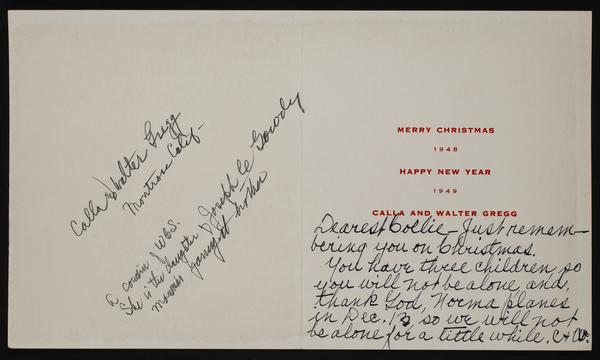 Calla & Walter Gregg
Montrose Calif-
a cousin of W.G.S.
She is the daughter of Joseph Gowdy
Mamma's youngest brother
MERRY CHRISTMAS
1948
HAPPY NEW YEAR
1949
CALLA AND WALTER GREGG
Dearest Collie- Just remem-
bering you on Christmas.
You have three children, so
you will not be alone and,
thank God, Norma planes
in Dec. 13 so we will not
be alone for a little while. C & W.